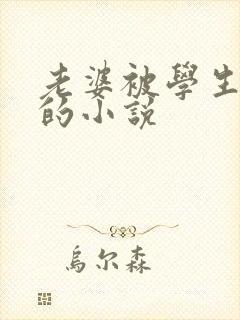 老婆被學生
的小説
烏尔森